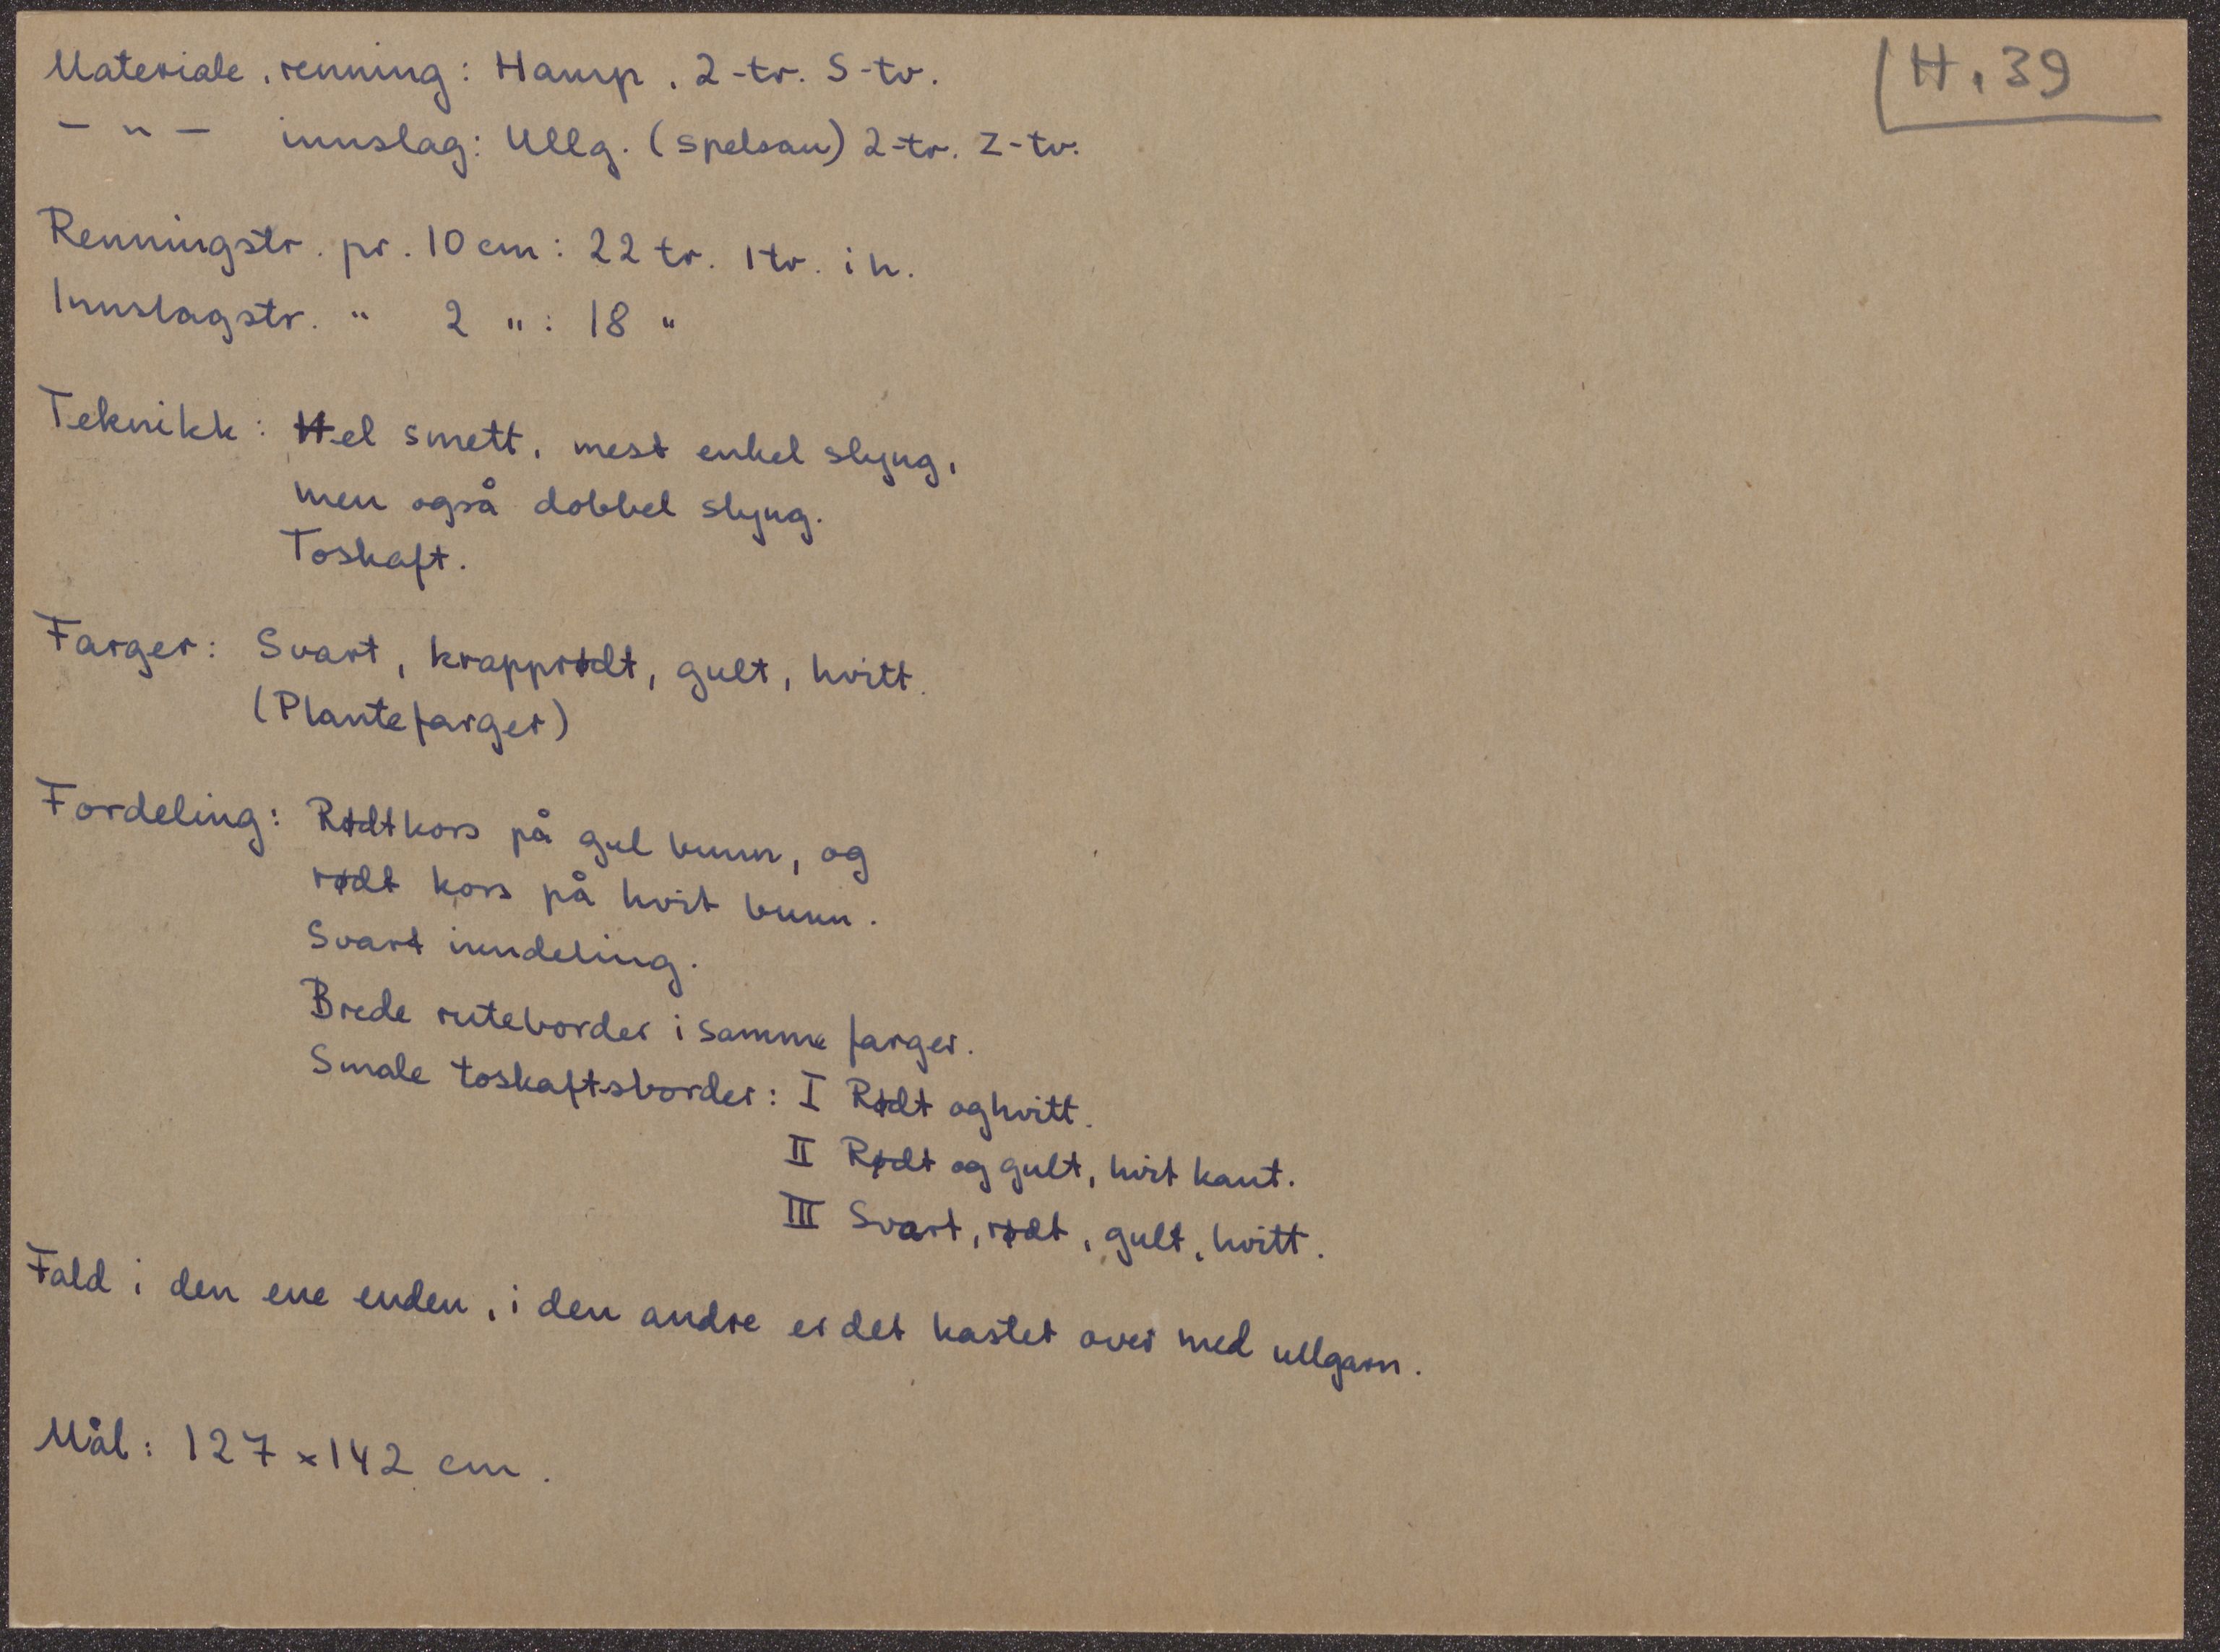 H. 39
Materiale, renning: Hamp, 2-tr. S-tv.
— " — innslag: Ullg. (spelsau) 2-tr. Z-tv.
Renningstr. pr. 10 cm: 22 tr. 1 tr. i h.
Innslagstr. " 2 " : 18 "
Teknikk: Hel smett, mest enkel slyng,
men også dobbel slyng.
Toskaft.
Farger: Svart, krapprødt, gult, hvitt.
(Plantefarger)
Fordeling: Rødt kors på gul bunn, og
rødt kors på hvit bunn.
Svart inndeling.
Brede ruteborder i samme farger.
Smale toskaftsborder: I Rødt og hvitt.
II Rødt og gult, hvit kant.
III Svart, rødt, gult, hvitt.
Fald i den ene enden, i den andre er det kastet over med ullgarn.
Mål: 127 x 142 cm.